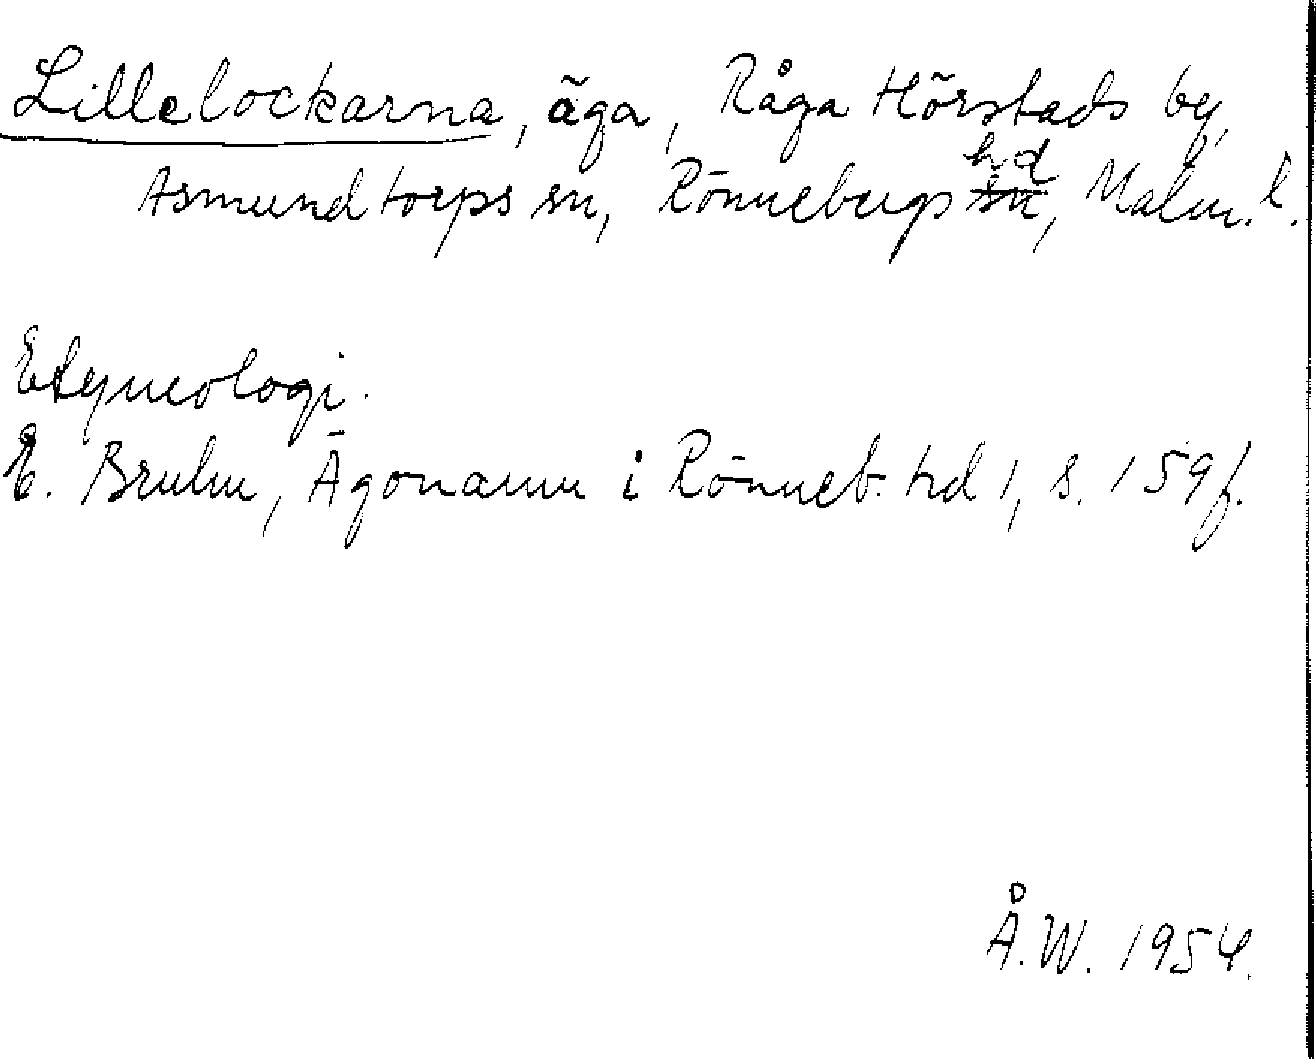 Lillelockarna, äga, Råga Hörstads by,
Asmundtorps sn, Rönnebergs hd, Malm. l.
Etymologi.
E. Bruhn, Ägonamn i Rönneb. hd 1, s. 159 f.
Å. W. 1954.